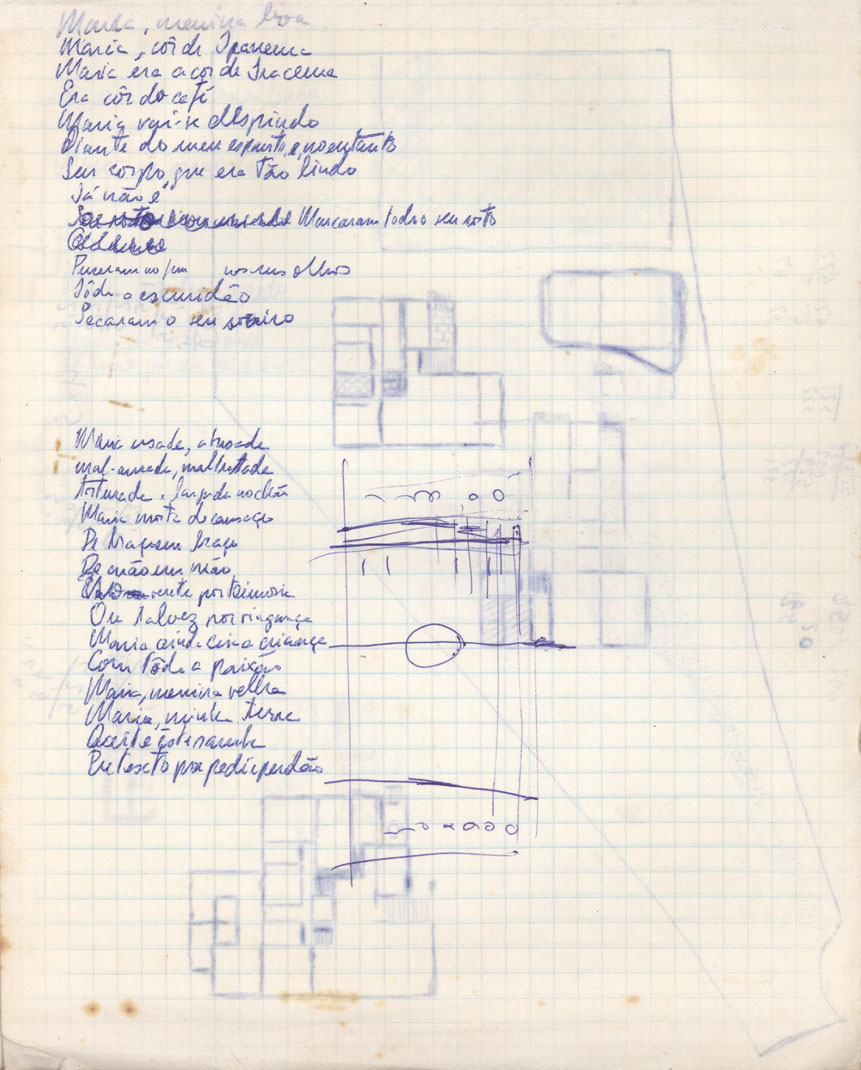 Maria, menina boa
Maria, côr de Ipanema
Maria era a côr de Iracema
Era côr do café
Maria vai-se despindo
Diante do meu espanto e, no entanto
Seu corpo, que era tão lindo
Já não é
Marcaram todo o seu rosto
Puseram nos seus olhos
Tôda a escuridão
Secaram o seu sorriso
Maria usada, abusada
mal-amada, maltratada
torturada, largada no chão
Maria morta de cansaço
De braço em braço
De mão em mão
por teimosia
Ou talvez por vingança
Maria ainda criança
Com tôda a paixão
Maria, menina velha
Maria, minha terna
Aceite êste samba
Pretexto pra pedir perdão